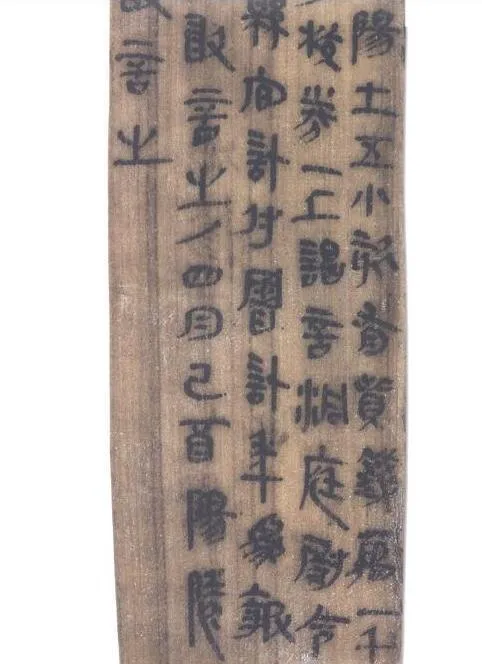 陽士五小欬有貲錢萬一千
校券一上謁言洞庭尉令
縣官計付署計年為報
敢言之/四月己酉陽陵
敢言之